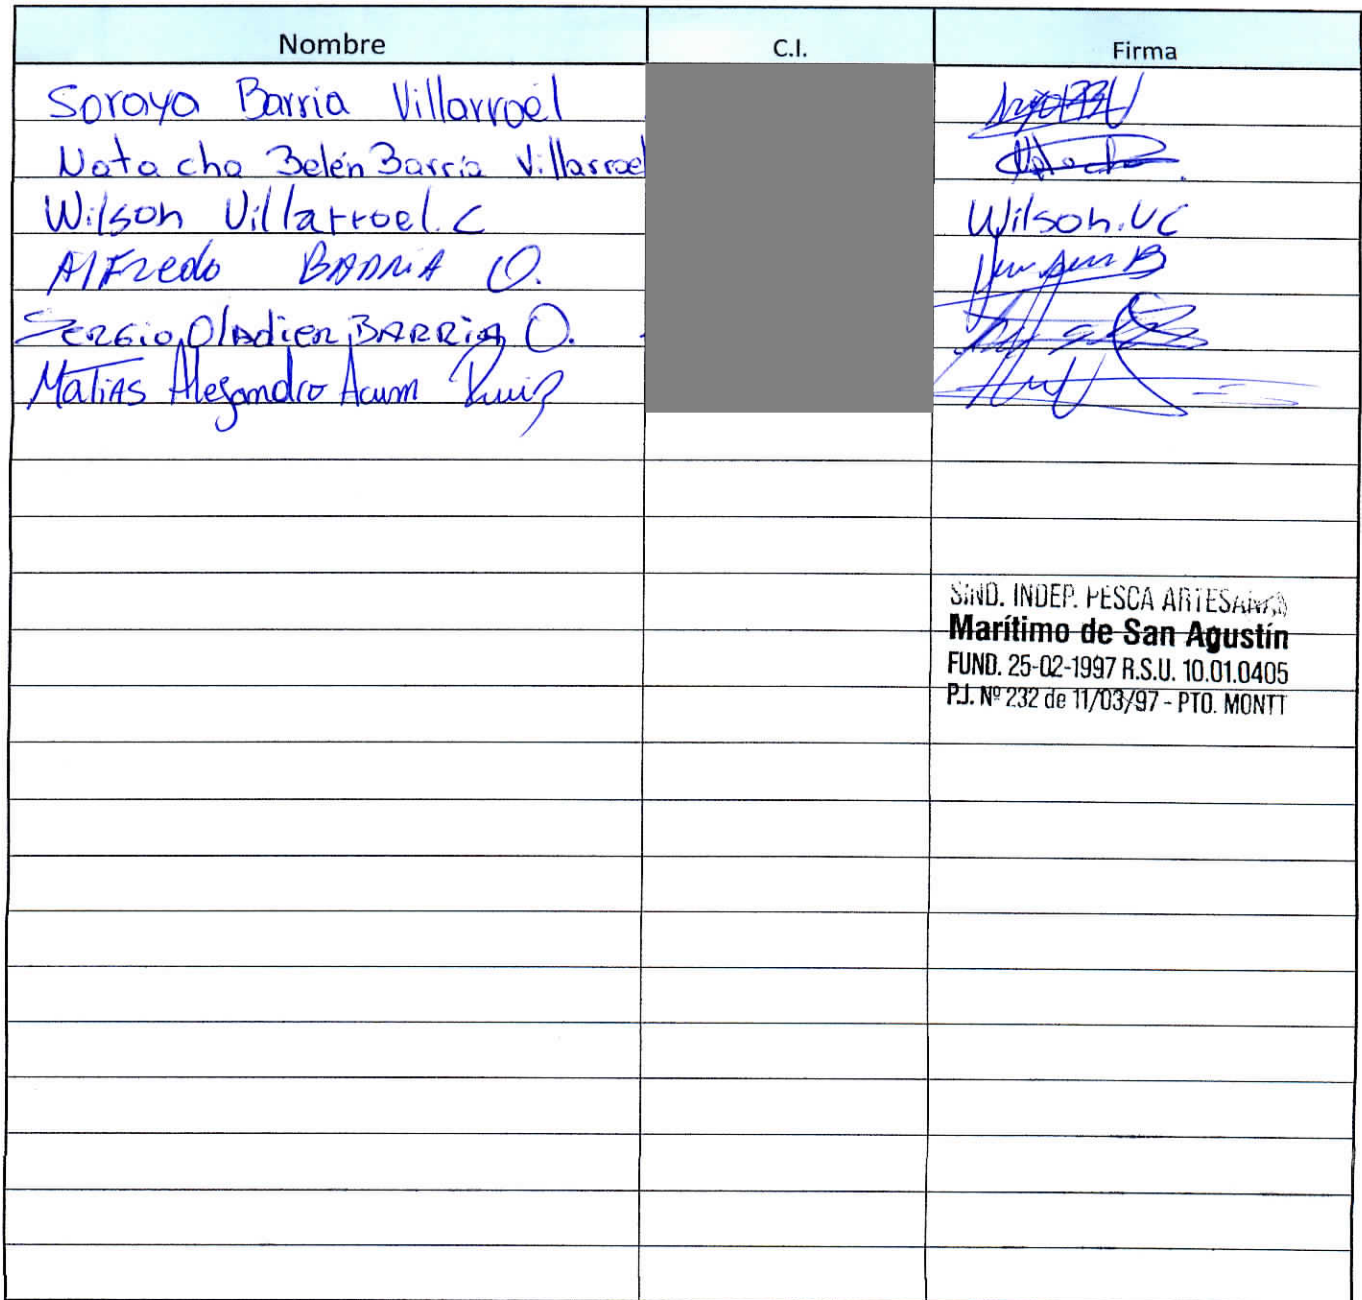 Nombre C.I. Firma
Soraya Barria Villarroel
Natacha Belén Barria Villarroel
Wilson Villarroel. C Wilson. VC
Alfredo BARRIA O.
Sergio Oladier BARRIA O.
Matias Alejandro Acum Ruiz
SIND. INDEP. PESCA ARTESANAL
Marítimo de San Agustín
FUND. 25-02-1997 R.S.U. 10.01.0405
P.J. Nº 232 de 11/03/97 - PTO. MONTT